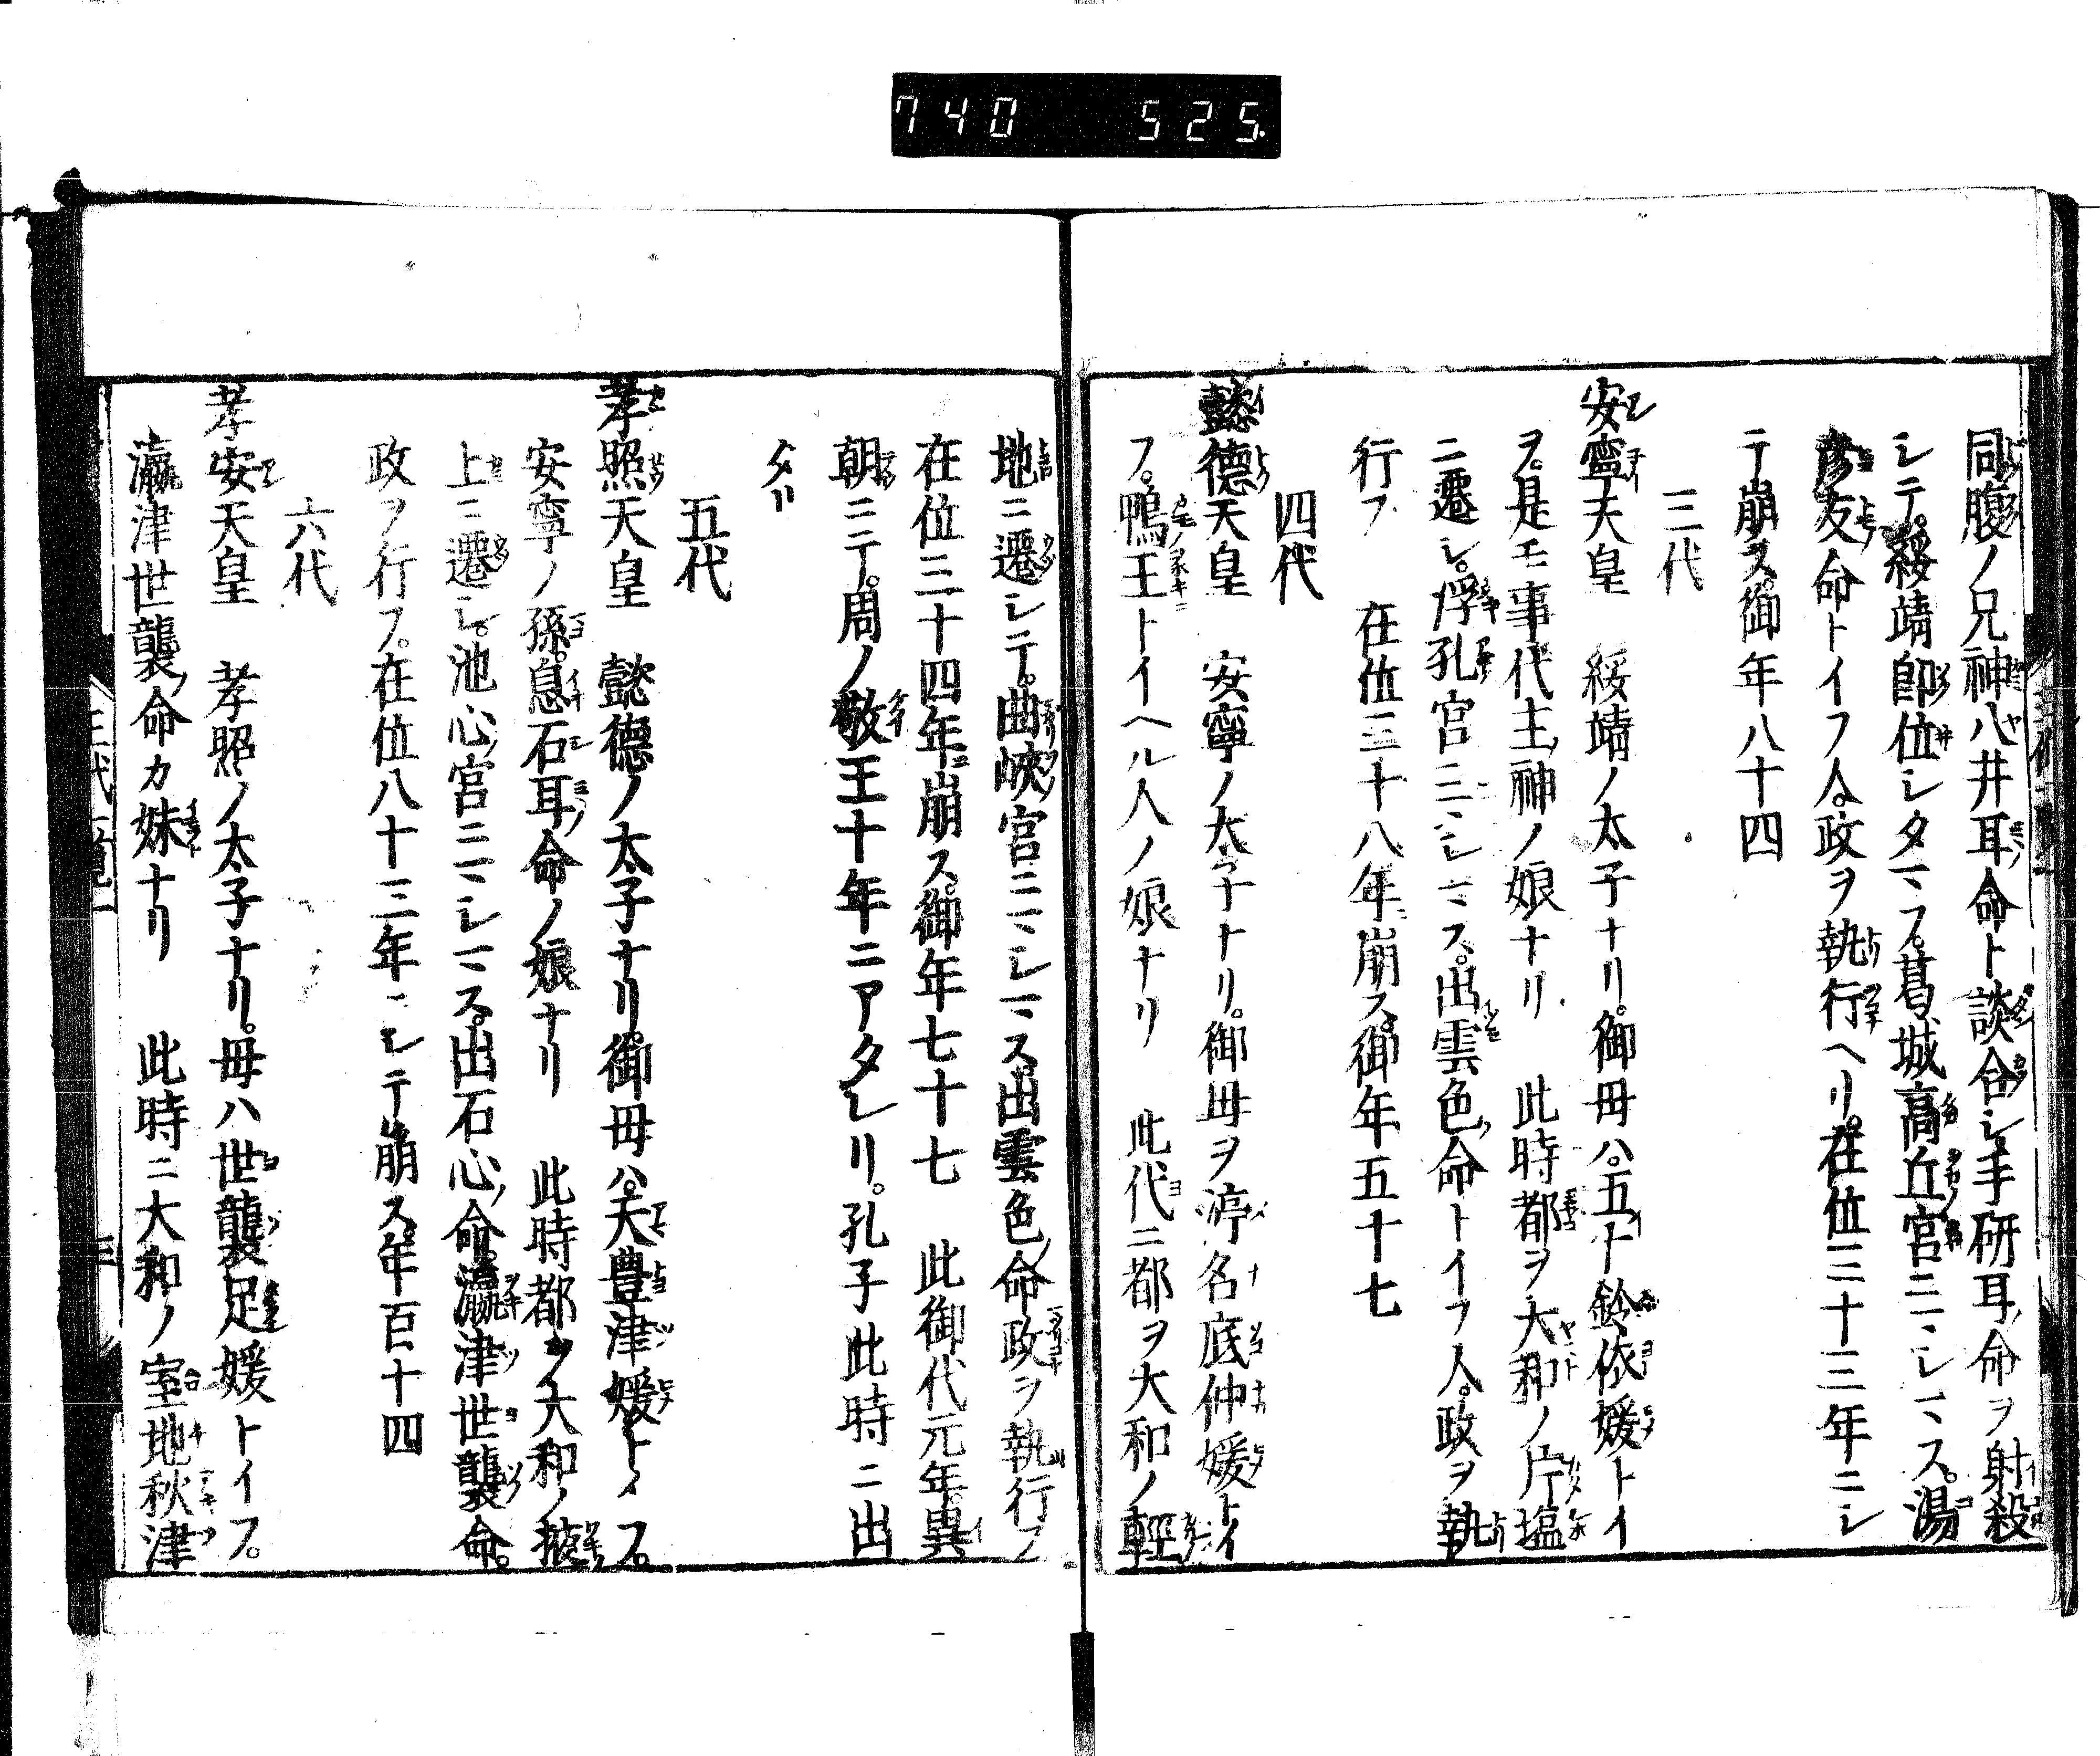 740 525.
同腹ノ兄神八井耳命ト談合シ手研耳命ヲ射殺
シテ。綏靖即位シタマフ。葛城高丘宮ニマシマス。湯
彦友命トイフ人。政ヲ執行ヘリ。在位三十三年ニシ
テ崩ス。御年八十四
三代
安寧天皇 綏靖ノ太子ナリ。御母ハ。五十鈴依媛トイ
ヲ。是モ事代主神ノ娘ナリ 此時都ヲ大和ノ片塩
ニ遷シ。浮孔宮ニマシマス。出雲色命トイフ人。政ヲ執
行フ 在位三十八年崩ス。御年五十七
四代
懿徳天皇 安寧ノ太子ナリ。御母ヲ渟名底仲媛トイ
フ。鴨王トイヘル人ノ娘ナリ 此代ニ都ヲ大和ノ軽
地ニ遷シテ。曲峽宮ニマシマス出雲色命政ヲ執行フ
在位三十四年ニ崩ス。御年七十七 此御代元年。異
朝ニテ。周ノ敬王十年ニアタレリ。孔子此時ニ出
タリ
五代
孝照天皇 懿徳ノ太子ナリ。御母ハ。天豊津媛トイフ。
安寧ノ孫。息石耳命ノ娘ナリ 此時都ヲ大和ノ掖
上ニ遷シ。池心宮ニマシマス。出石心命。瀛津世襲命。
政ヲ行フ。在位八十三年ニシテ崩ス。年百十四
六代
孝安天皇 孝照ノ太子ナリ。母ハ世襲足媛トイフ。
瀛津世襲命カ妹ナリ 此時ニ大和ノ室地秋津